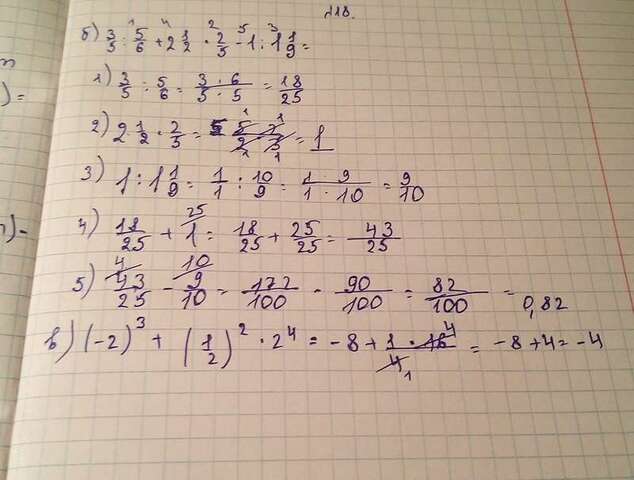 №18.
б) 3/5 : 5/6 + 2 1/2 · 2/5 - 1 : 1 1/9 =
1) 3/5 : 5/6 = 3 · 6 / 5 · 5 = 18/25
2) 2 1/2 · 2/5 = 5 · 2 / 2 · 5 = 1
3) 1 : 1 1/9 = 1/1 : 10/9 = 1 · 9 / 1 · 10 = 9/10
4) 18/25 + 1 = 18/25 + 25/25 = 43/25
5) 43/25 - 9/10 = 172/100 - 90/100 = 82/100 = 0,82
в) (-2)³ + (1/2)² · 2⁴ = -8 + 1 · 16 / 4 = -8 + 4 = -4